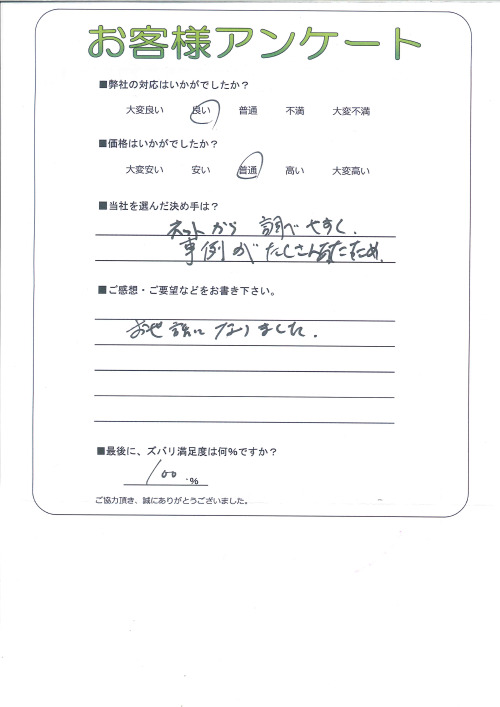 お客様アンケート
■弊社の対応はいかがでしたか?
大変良い 良い 普通 不満 大変不満
■価格はいかがでしたか?
大変安い 安い 普通 高い 大変高い
■当社を選んだ決め手は?
ネットから 調べやすく、
事例がたくさんあったため。
■ご感想・ご要望などをお書き下さい。
お世話になりました。
■最後に、ズバリ満足度は何%ですか?
100 %
ご協力頂き、誠にありがとうございました。